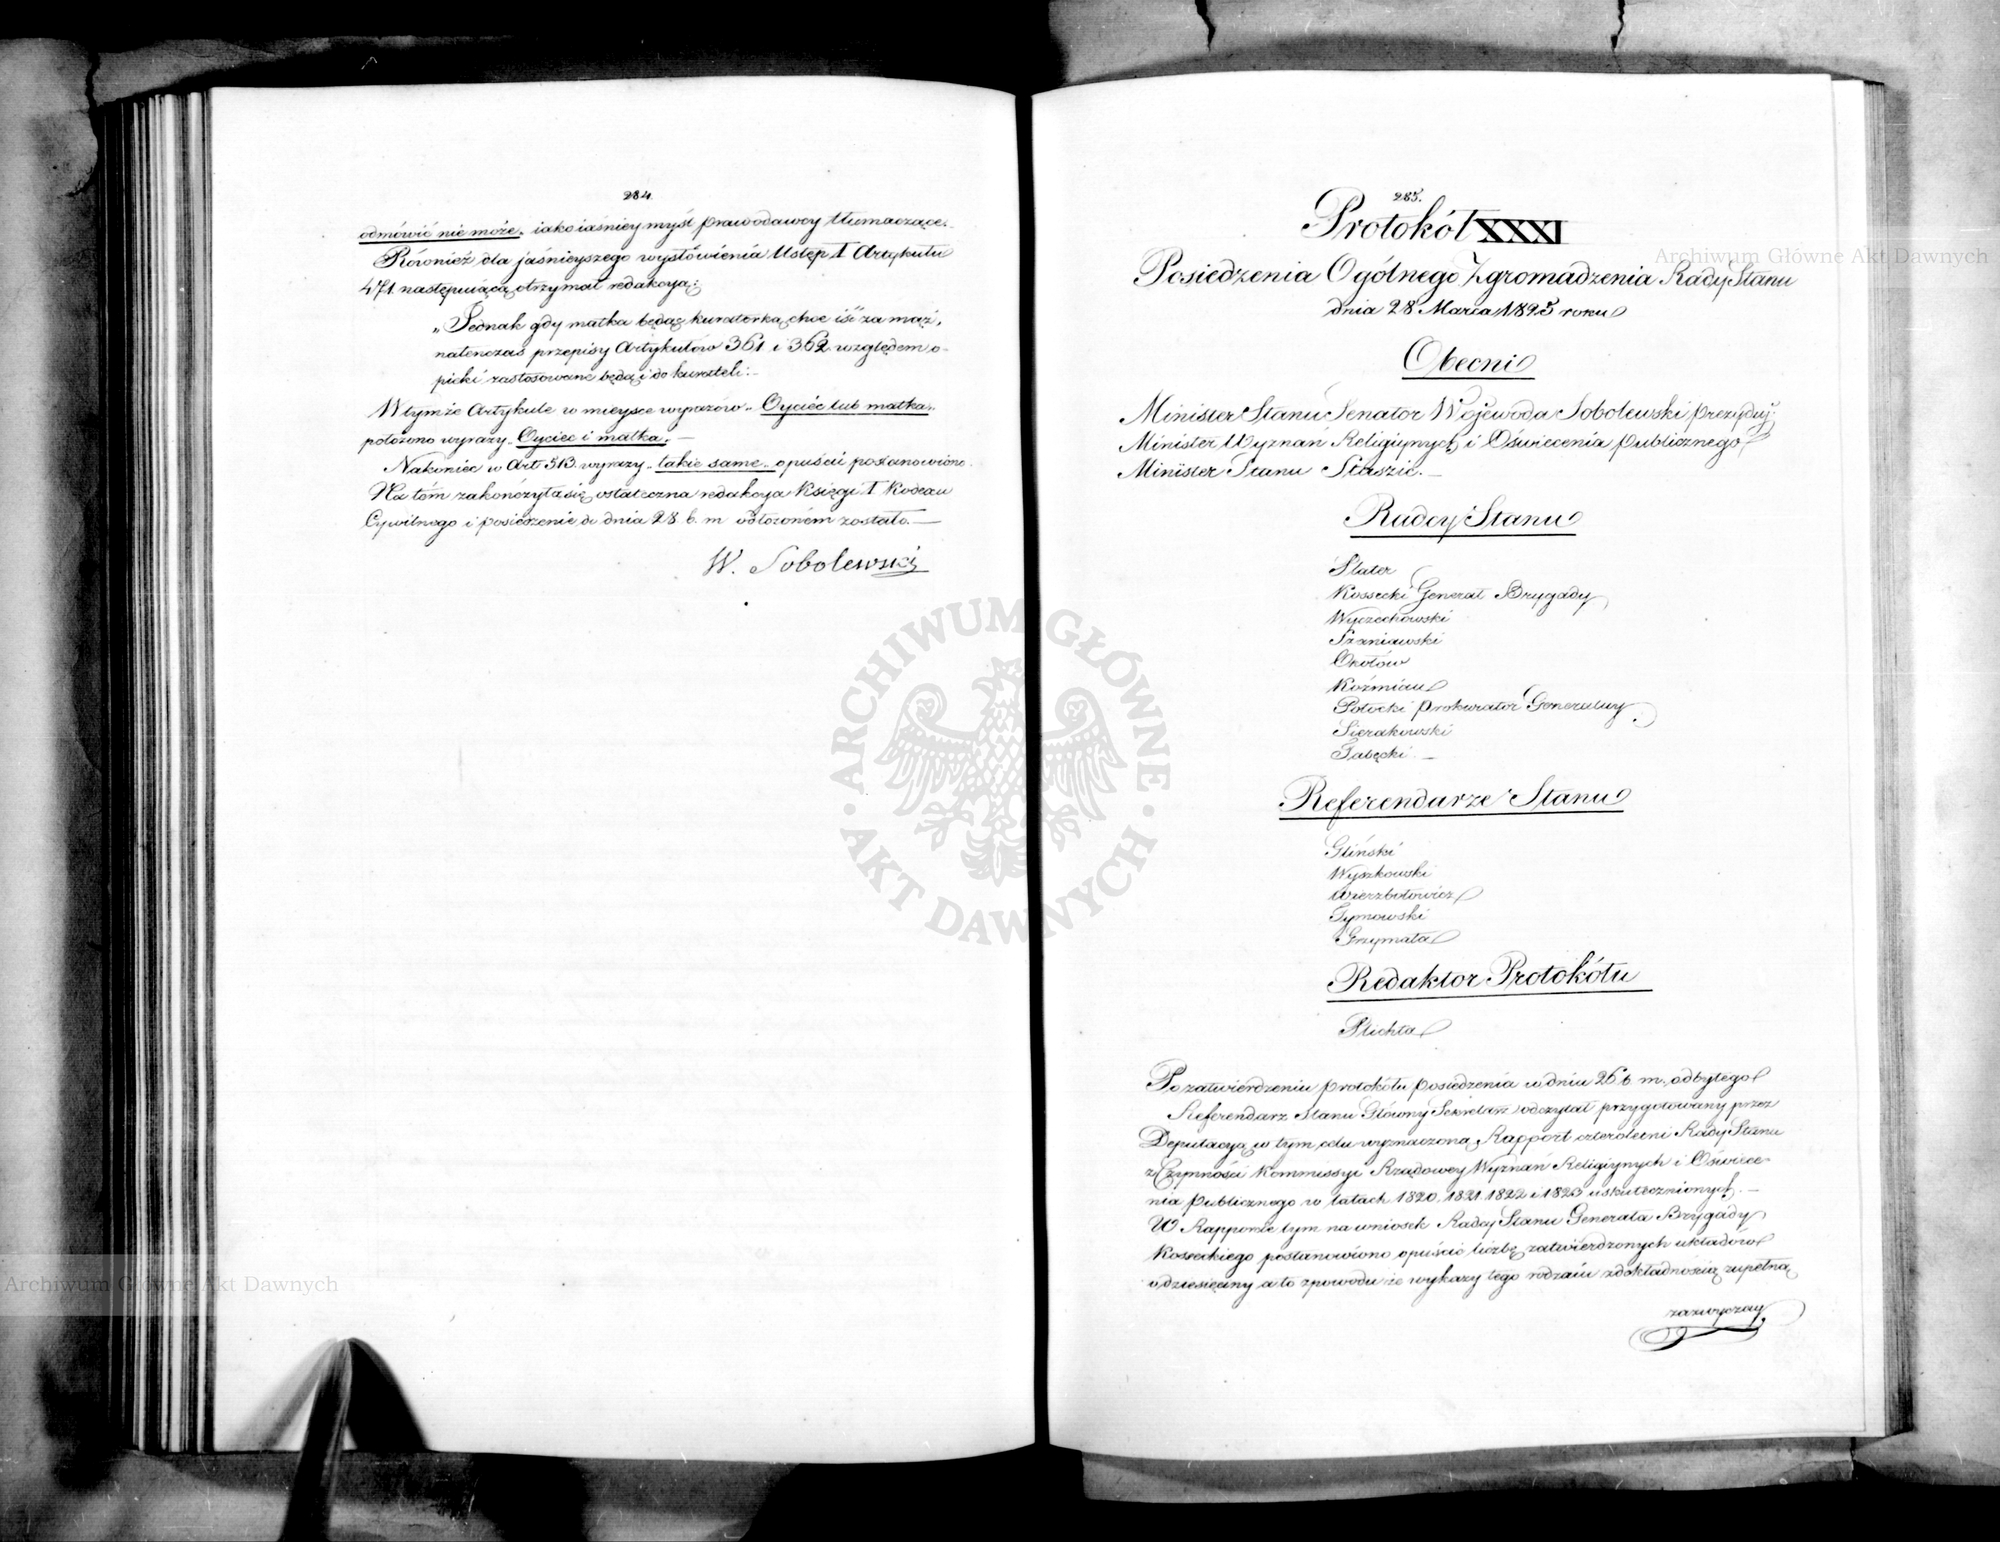 284.
odmówić nie może„ iako iaśniey myśl prawodawcy tłumaczące.
Również dla jaśnieyszego wysłowienia Ustęp I Artykułu
471. następuiącą otrzymał redakcyą:
„Jednak gdy matka będąc kuratorką chce iść za mąż,
natenczas przepisy Artykułów 361 i 362 względem o-
pieki zastosowane będą i do kurateli:
W tymże Artykule w mieysce wyrazów „Oyciec lub matka„
położono wyrazy „Oyciec i matka„ —
Nakoniec w Art. 513. wyrazy „takie same„ opuścić postanowiono.
Na tém zakończyła się ostateczna redakcya Księgi I Kodexu
Cywilnego i posiedzenie do dnia 28 b. m odłożoném zostało. —
W. Sobolewski
285.
Protokół XXXI
Posiedzenia Ogólnego Zgromadzenia Rady Stanu
dnia 28 Marca 1825 roku
Obecni
Minister Stanu Senator Wojewoda Sobolewski prezyduj:
Minister Wyznań Religiynych i Oświecenia publicznego
Minister Stanu Staszic. —
Radcy Stanu
Plater
Kossecki Generał Brygady
Wyczechowski
Szaniawski
Okołów
Koźmian
Potocki prokurator Generalny
Sierakowski
Tabęcki. —
Referendarze Stanu
Gliński
Wyszkowski
Wierzbołowicz
Tymowski
Grzymała
Redaktor Protokółu
Plichta
Po zatwierdzeniu protokółu posiedzenia w dniu 26 b. m. odbytego
Referendarz Stanu Główny Sekretarz odczytał przygotowany przez
Deputacyą w tym celu wyznaczoną Rapport czteroletni Rady Stanu
z Czynności Kommissyi Rządowey Wyznań Religiynych i Oświece-
nia publicznego w latach 1820, 1821, 1822 i 1823 uskutecznionych. —
W Rapporcie tym na wniosek Radcy Stanu Generała Brygady
Kosseckiego postanowiono opuścić liczbę zatwierdzonych układów
o dziesięciny a to z powodu że wykazy tego rodzaiu z dokładnością zupełną
zazwyczay
Archiwum Główne Akt Dawnych
Archiwum Główne Akt Dawnych
ARCHIWUM GŁÓWNE AKT DAWNYCH